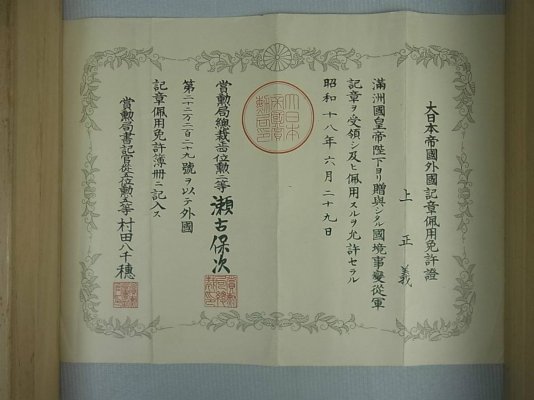 大日本帝國外國記章佩用免許證
上正義
滿洲國皇帝陛下ヨリ贈與シタル國境事變從軍
記章ヲ受領シ及ヒ佩用スルヲ允許セラル
昭和十八年六月二十九日
大日本
帝國賞
勲局印
賞勲局總裁正四位勲二等瀬古保次
第二十二万二百二十九號ヲ以テ外國
記章佩用免許簿册ニ記入ス
賞勲局書記官從五位勲五等村田八千穗